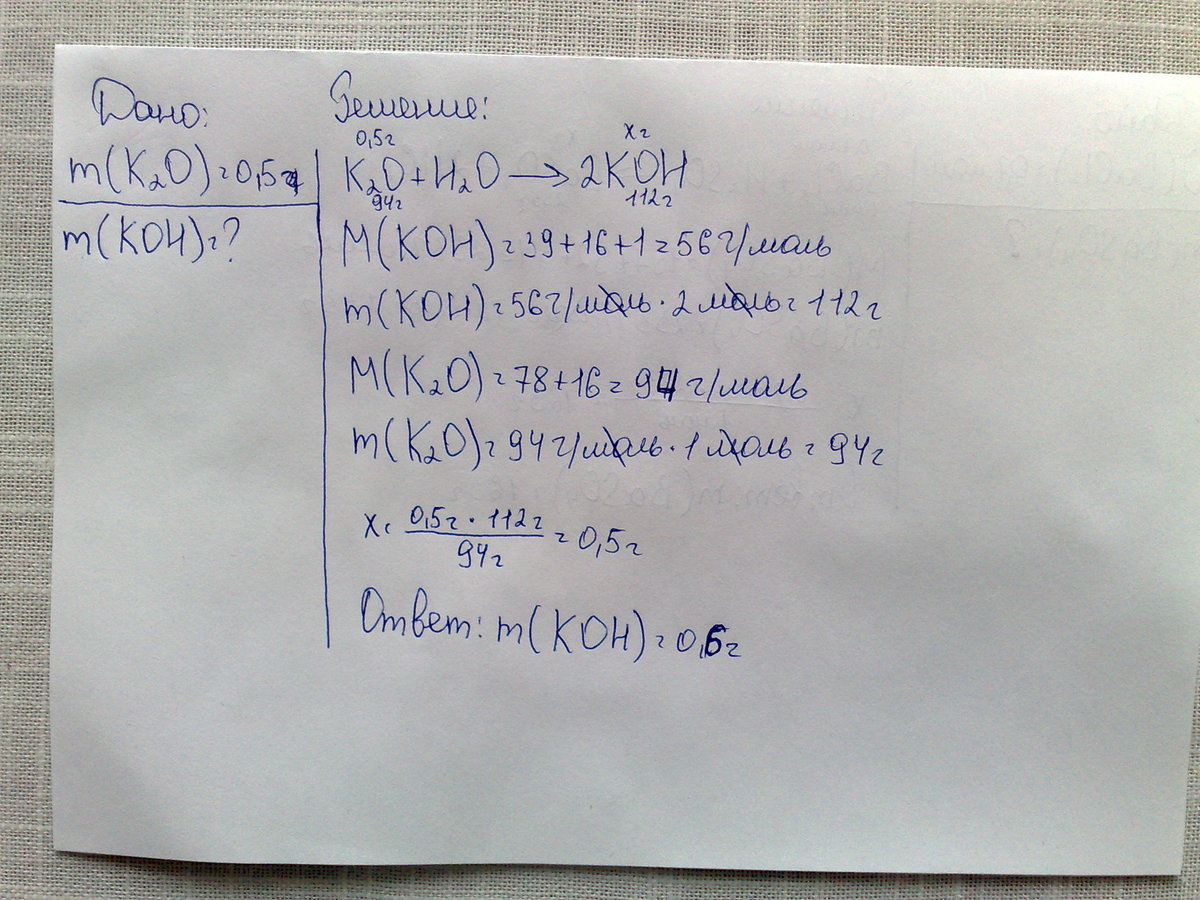 Дано:
m(K₂O) = 0,5г
m(KOH) = ?
Решение:
0,5г хг
K₂O + H₂O → 2KOH
94г 112г
M(KOH) = 39+16+1 = 56 г/моль
m(KOH) = 56г/моль · 2 моль = 112г
M(K₂O) = 78+16 = 94 г/моль
m(K₂O) = 94г/моль · 1 моль = 94г
x = 0,5г · 112г / 94г = 0,5г
Ответ: m(KOH) = 0,6г